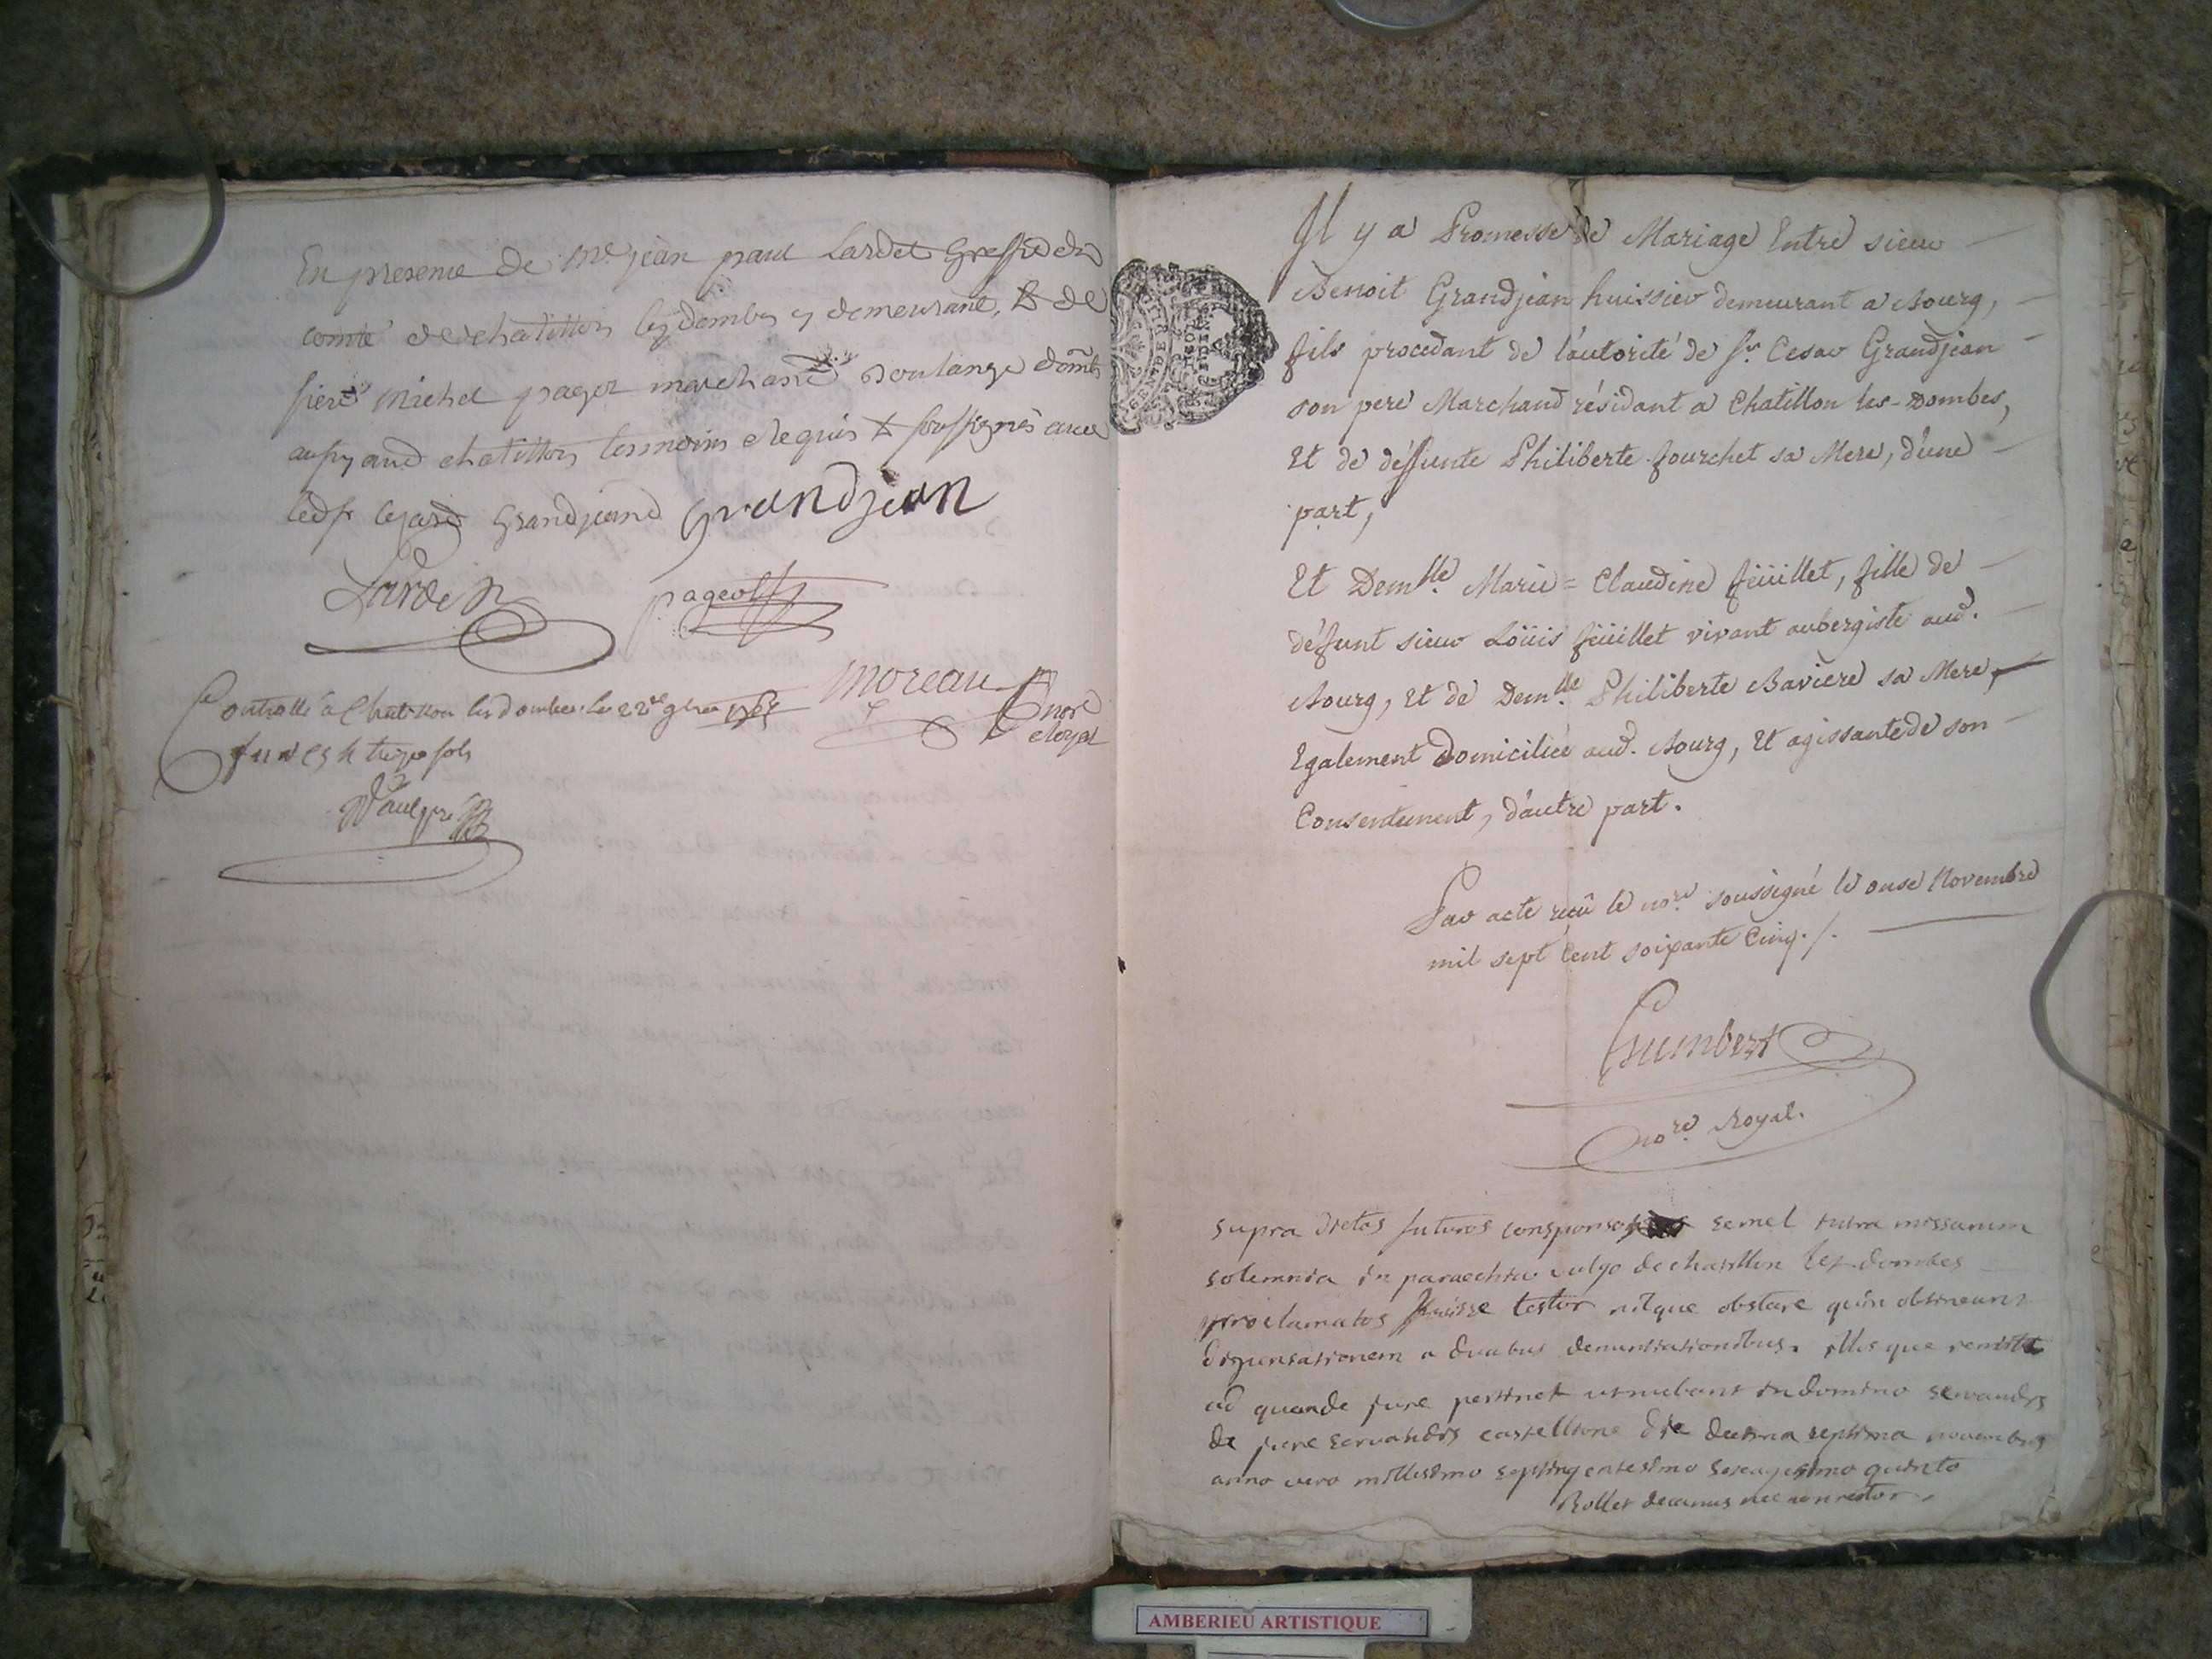 En presence de Me jean paul Lardet Greffier du
comté de chatillon les dombes y demeurant, & de
sieur Michel pagot marchand Boulanger domte
aussy aud chatillon temoins requis & soussignés avec
led sr Cezard Grandjeand Grandjean
Lardet pageot
moreau
nore
Royal
Controllé à Chatillon les dombes le 22e 9bre 1765
treize sols
Il y a Promesse de Mariage Entre sieur
Benoit Grandjean huissier demeurant a Bourg,
fils procedant de l'autorité de Sr. Cesar Grandjean
son pere Marchand résidant a Chatillon les-Dombes,
Et de déffunte Philiberte fourchet sa Mere, d'une
part,
Et Demlle. Marie=Claudine feüillet, fille de
défunt sieur Loüis feüillet vivant aubergiste aud.
Bourg, Et de Demlle. Philiberte Baviere sa Mere,
Egalement Domiciliée aud. Bourg, Et agissante de son
Consentement, d'autre part.
Par acte reçu le nore. soussigné le onse Novembre
mil sept Cent soixante Cinq./.
Humbert
nore. Royal.
supra dictos futuros consponsos semel intra missarum
solemnia in paraechia vulgo de chatillon les-dombes
proclamatos fuisse testor nilque obstare quin obtineant
dispensationem a duabus denuntiationibus. illosque remitto
ad quem de jure pertinet ut nubant in domino servandis
de jure servandis castellione die decima septima novembris
anno vero millesimo septingentesimo sexagesimo quinto
Rollet decanus nec non rector.
AMBERIEU ARTISTIQUE